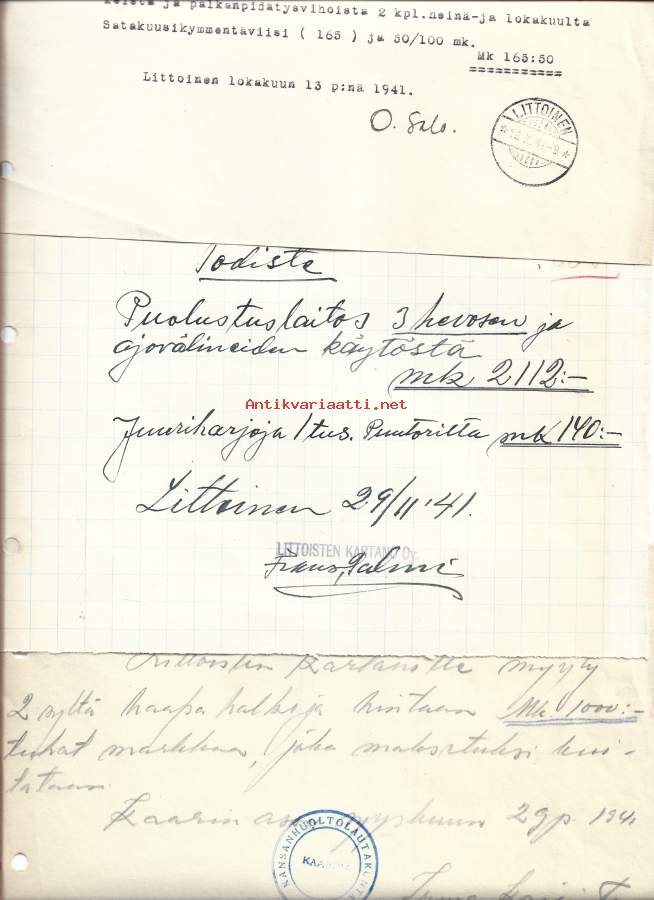 ja palkanpidätysvihoista 2 kpl.heinä-ja lokakuulta
Satakuusikymmentäviisi ( 165 ) ja 50/100 mk.
Mk 165:50
===========
Littoinen lokakuun 13 p:nä 1941.
O. Salo.
LITTOINEN
Todiste
Puolustuslaitos 3 hevosen ja
ajovälineiden käytöstä
mk 2112:-
Antikvariaatti.net
Juuriharjoja 1 tus. Puutorilta mk 140:-
Littoinen 29/11 '41.
LITTOISTEN KARTANO Oy.
Frans Palmi
Littoisten Kartanolle myyty
2 syltä haapa halkoja hintaan Mk. 1000:-
tuhat markkaa, joka maksetuksi kui-
tataan.
Kaarinassa syyskuun 29 p. 1941
KANSANHUOLTOLAUTAKUNTA
KAARINA